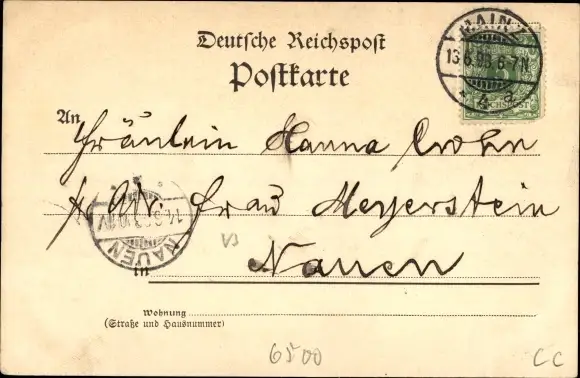 Deutsche Reichspost
Postkarte
MAINZ
13.6.98.6-7N
* 4. a
REICHSPOST
An Fräulein Hanna Crohn
Adr. Frau Meyerstein
NAUEN
VB
in Nauen
Wohnung
(Straße und Hausnummer)
6500
CC